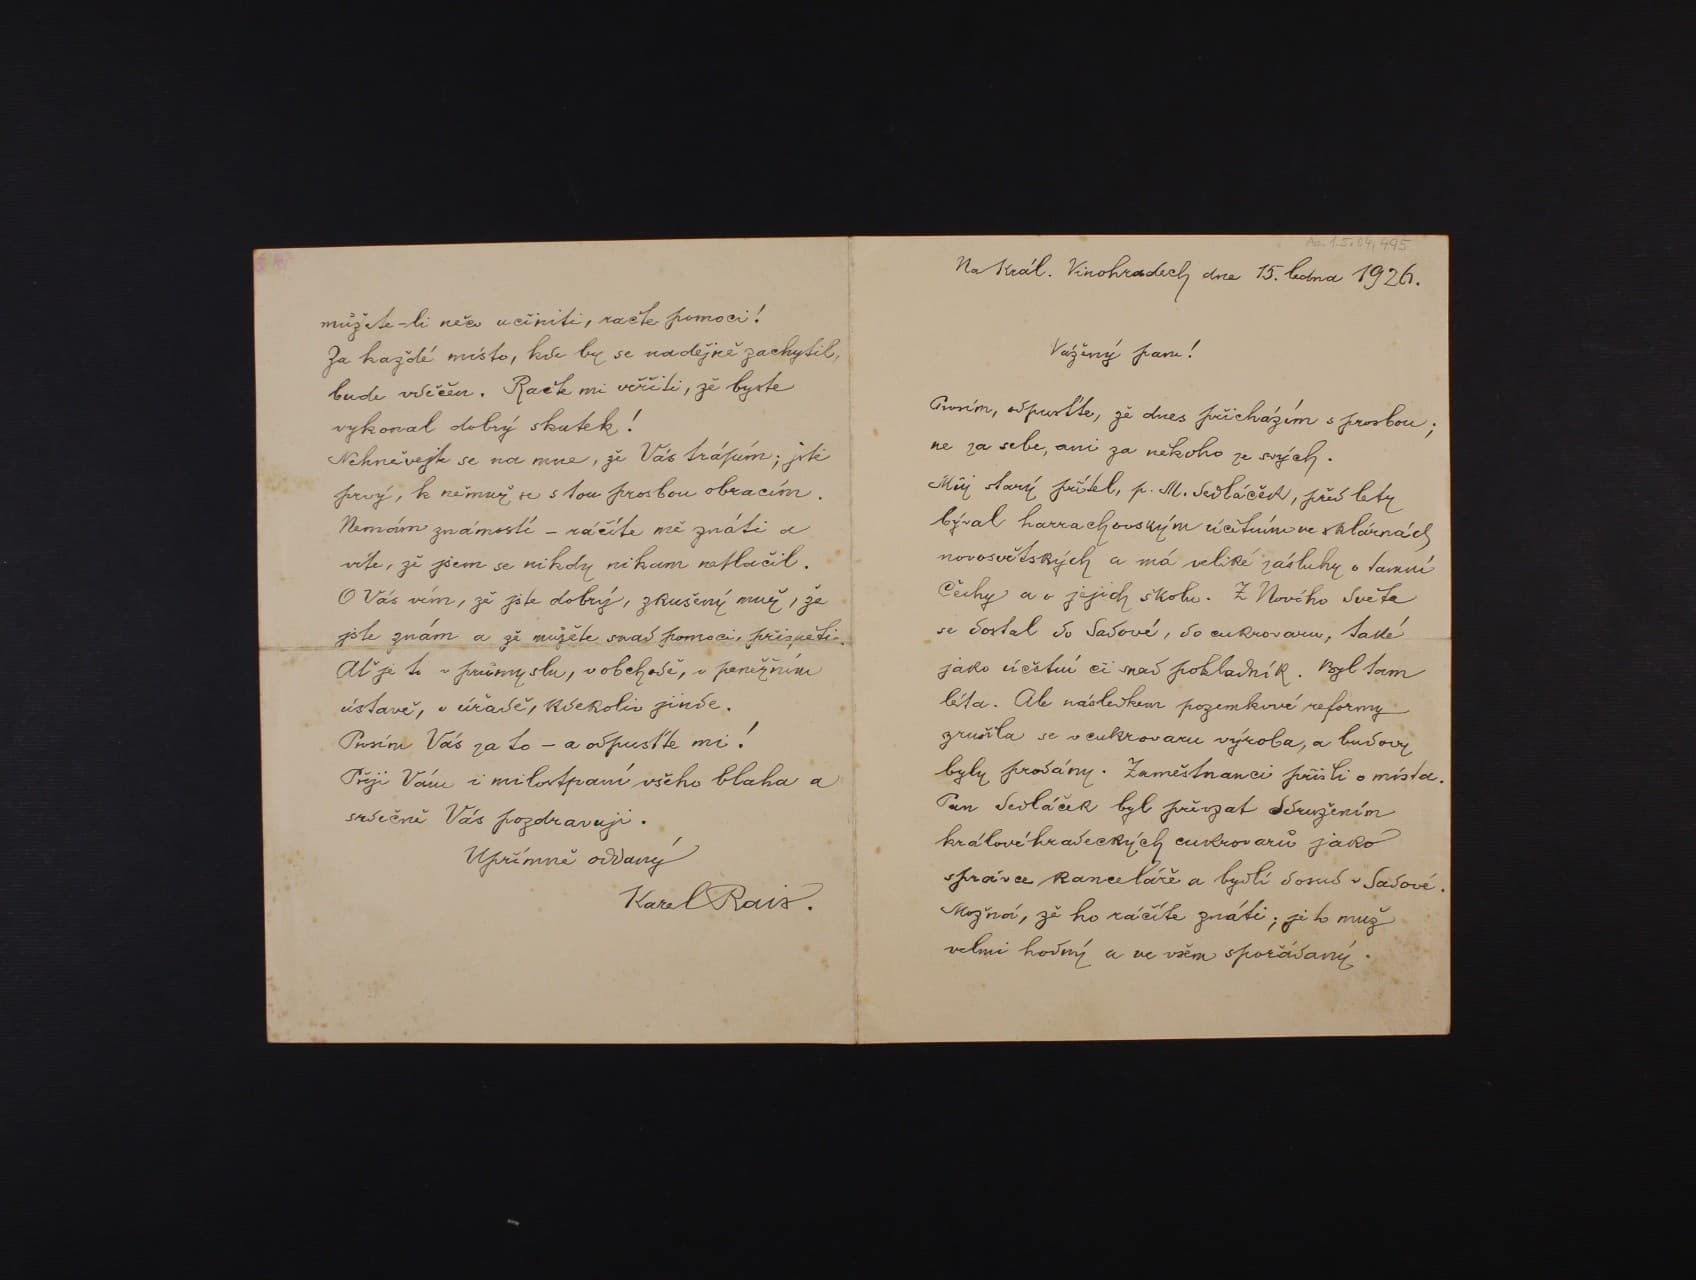 Na Král. Vinohradech dne 15. ledna 1926.
Vážený pane!
Prosím, odpusťte, že dnes přicházím s prosbou;
ne za sebe, ani za někoho ze svých.
Můj starý přítel, p. M. Sedláček, před lety
býval harrachovským účetním ve sklárnách
novosvětských a má veliké zásluhy o tamní
Čechy a o jejich školu. Z Nového Světa
se dostal do Sadové, do cukrovaru, také
jako účetní či snad pokladník. Byl tam
léta. Ale následkem pozemkové reformy
zrušila se v cukrovaru výroba, a budovy
byly prodány. Zaměstnanci přišli o místa.
Pan Sedláček byl převzat Sdružením
královéhradeckých cukrovarů jako
správce kanceláře a bydlí dosud v Sadové.
Možná, že ho ráčíte znáti; je to muž
velmi hodný a ve všem spořádaný.
můžete-li něco učiniti, račte pomoci!
Za každé místo, kde by se nadějně zachytil,
bude vděčen. Račte mi věřiti, že byste
vykonal dobrý skutek!
Nehněvejte se na mne, že Vás trápím; jste
prvý, k němuž se s tou prosbou obracím.
Nemám známostí – ráčíte mě znáti a
víte, že jsem se nikdy nikam netlačil.
O Vás vím, že jste dobrý, zkušený muž, že
jste znám a že můžete snad pomoci, přispěti.
Ať je to v průmyslu, v obchodě, v peněžním
ústavě, v úřadě, kdekoliv jinde.
Prosím Vás za to – a odpusťte mi!
Přeji Vám i milostpaní všeho blaha a
srdečně Vás pozdravuji.
Upřímně oddaný
Karel Rais.